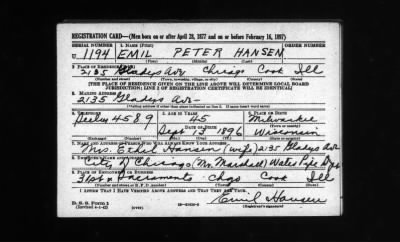 REGISTRATION CARD—(Men born on or after April 28, 1877 and on or before February 16, 1897)
SERIAL NUMBER 1. NAME (Print) ORDER NUMBER
U 1194 EMIL PETER HANSEN
(First) (Middle) (Last)
2. PLACE OF RESIDENCE (Print)
2135 Gladys Ave Chicago Cook Ill
(Number and street) (Town, township, village, or city) (County) (State)
[THE PLACE OF RESIDENCE GIVEN ON THE LINE ABOVE WILL DETERMINE LOCAL BOARD
JURISDICTION; LINE 2 OF REGISTRATION CERTIFICATE WILL BE IDENTICAL]
3. MAILING ADDRESS
2135 Gladys Ave
(Mailing address if other than place indicated on line 2. If same insert word same)
4. TELEPHONE 5. AGE IN YEARS 6. PLACE OF BIRTH
Seeley 4589 45 Milwaukee
DATE OF BIRTH (Town or county)
Sept 13 1896 Wisconsin
(Exchange) (Number) (Mo.) (Day) (Yr.) (State or country)
7. NAME AND ADDRESS OF PERSON WHO WILL ALWAYS KNOW YOUR ADDRESS
Mrs. Ethel Hansen (wife) 2135 Gladys Ave
8. EMPLOYER'S NAME AND ADDRESS
City of Chicago (Mr. Marshall) Water Pipe Dept
9. PLACE OF EMPLOYMENT OR BUSINESS
31st & Sacramento Chgo Cook Ill
(Number and street or R. F. D. number) (Town) (County) (State)
I AFFIRM THAT I HAVE VERIFIED ABOVE ANSWERS AND THAT THEY ARE TRUE.
Emil Hansen
D. S. S. Form 1
(Revised 4-1-42) (over) (Registrant's signature)